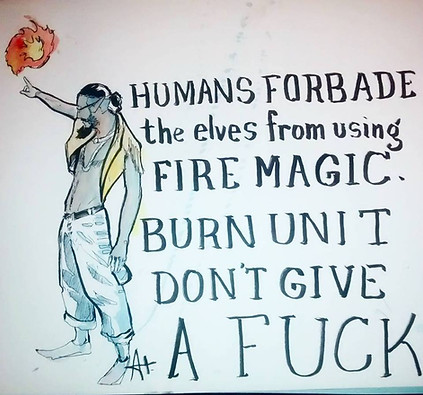 HUMANS FORBADE
the elves from using
FIRE MAGIC.
BURN UNIT
DON'T GIVE
A FUCK